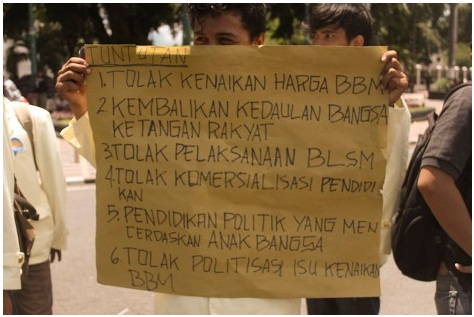 TUNTUTAN
1. TOLAK KENAIKAN HARGA BBM
2. KEMBALIKAN KEDAULAN BANGSA
KETANGAN RAKYAT
3. TOLAK PELAKSANAAN BLSM
4. TOLAK KOMERSIALISASI PENDIDI
KAN
5. PENDIDIKAN POLITIK YANG MEN
CERDASKAN ANAK BANGSA
6. TOLAK POLITISASI ISU KENAIKAN
BBM